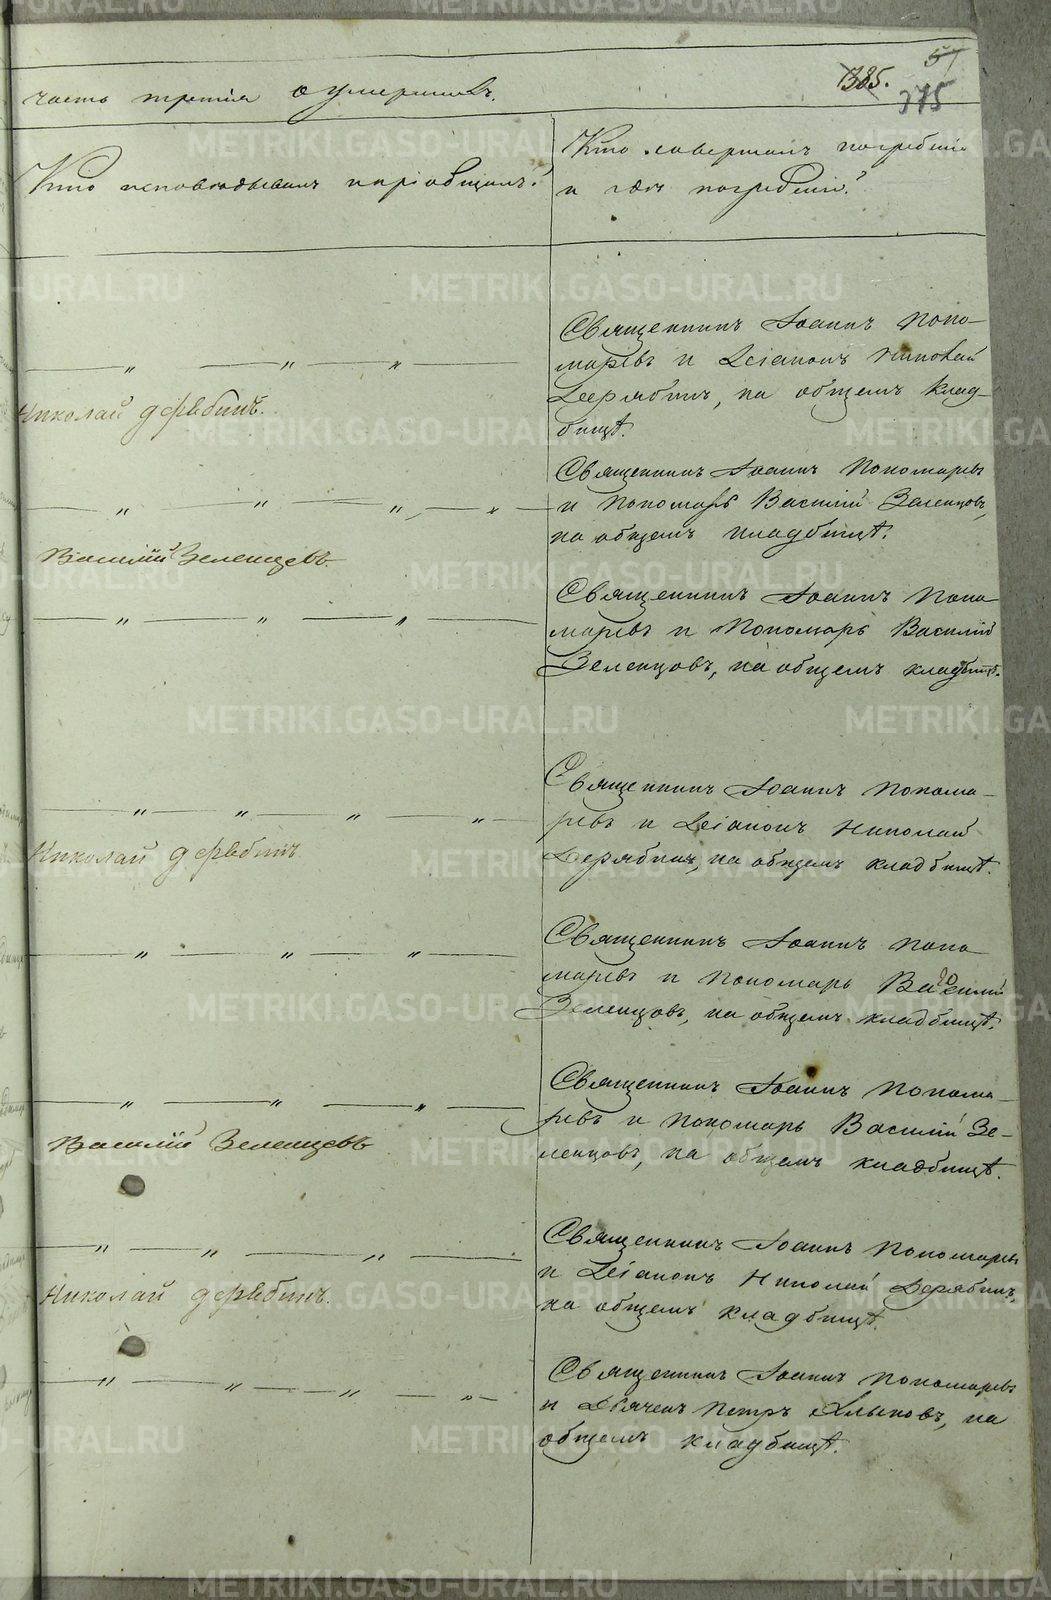 часть третія о умершихъ.
1385.
57
375
Кто исповѣдывалъ и пріобщалъ?
Кто совершалъ погребеніе
и гдѣ погребены?
Священникъ Іоаннъ Поно-
маревъ и Діаконъ Николай
Дерябинъ, на общемъ клад-
бищѣ.
Николай Дерябинъ.
Священникъ Іоаннъ Пономаревъ
и Пономарь Василій Зеленцовъ,
на общемъ кладбищѣ.
Василій Зеленцевъ
Священникъ Іоаннъ Поно-
маревъ и Пономарь Василій
Зеленцовъ, на общемъ кладбищѣ.
Священникъ Іоаннъ Понома-
ревъ и Діаконъ Николай
Дерябинъ, на общемъ кладбищѣ.
Николай Дерябинъ
Священникъ Іоаннъ Поно-
маревъ и Пономарь Василій
Зеленцовъ, на общемъ кладбищѣ.
Священникъ Іоаннъ Понома-
ревъ и Пономарь Василій Зе-
ленцовъ, на общемъ кладбищѣ.
Василій Зеленцевъ
Священникъ Іоаннъ Пономаревъ
и Діаконъ Николай Дерябинъ,
на общемъ кладбищѣ.
Николай Дерябинъ.
Священникъ Іоаннъ Пономаревъ
и Дьячекъ Петръ Хлыновъ, на
общемъ кладбищѣ.
METRIKI.GASO-URAL.RU